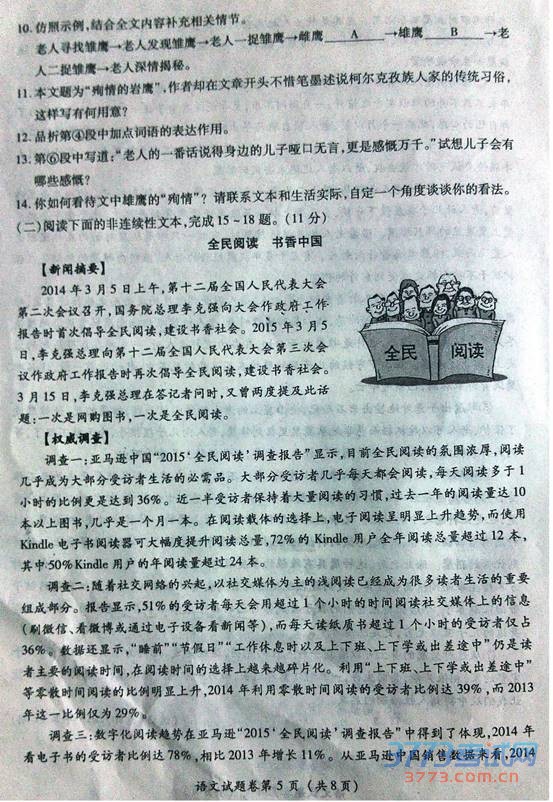 10. 仿照示例,结合全文内容补充相关情节。
老人寻找雏鹰→老人发现雏鹰→老人一捉雏鹰→雌鹰 A →雄鹰 B →老
人二捉雏鹰→老人深情揭秘。
11. 本文题为“殉情的岩鹰”,作者却在文章开头不惜笔墨述说柯尔克孜族人家的传统习俗,
这样写有何用意?
12. 品析第④段中加点词语的表达作用。
13. 第⑥段中写道:“老人的一番话说得身边的儿子哑口无言,更是感慨万千。”试想儿子会有
哪些感慨?
14. 你如何看待文中雄鹰的“殉情”? 请联系文本和生活实际,自定一个角度谈谈你的看法。
(二)阅读下面的非连续性文本,完成 15~18 题。(11 分)
全民阅读 书香中国
【新闻摘要】
2014 年 3 月 5 日上午,第十二届全国人民代表大会
第二次会议召开,国务院总理李克强向大会作政府工作
报告时首次倡导全民阅读,建设书香社会。2015 年 3 月 5
日,李克强总理向第十二届全国人民代表大会第三次会
议作政府工作报告时再次倡导全民阅读,建设书香社会。
3 月 15 日,李克强总理在答记者问时,又曾两度提及此话
题:一次是网购图书,一次是全民阅读。
全民 阅读
【权威调查】
调查一:亚马逊中国“2015‘全民阅读’调查报告”显示,目前全民阅读的氛围浓厚,阅读
几乎成为大部分受访者生活的必需品。大部分受访者几乎每天都会阅读,每天阅读多于 1
小时的比例更是达到 36%。近一半受访者保持着大量阅读的习惯,过去一年的阅读量达 10
本以上图书,几乎是一个月一本。在阅读载体的选择上,电子阅读呈明显上升趋势,而使用
Kindle 电子书阅读器可大幅度提升阅读总量,72%的 Kindle 用户全年阅读总量超过 12 本,
其中 50% Kindle 用户的年阅读量超过 24 本。
调查二:随着社交网络的兴起,以社交媒体为主的浅阅读已经成为很多读者生活的重要
组成部分。报告显示,51%的受访者每天会用超过 1 个小时的时间阅读社交媒体上的信息
(刷微信、看微博或通过电子设备看新闻等),而每天读纸质书超过 1 个小时的受访者仅占
36%。数据还显示,“睡前”“节假日”“工作休息时以及上下班、上下学或出差途中”仍是读
者主要的阅读时间,在阅读时间的选择上越来越碎片化。利用“上下班、上下学或出差途中”
等零散时间阅读的比例明显上升,2014 年利用零散时间阅读的受访者比例达 39%,而 2013
年这一比例仅为 29%。
调查三:数字化阅读趋势在亚马逊“2015‘全民阅读’调查报告”中得到了体现,2014 年
看电子书的受访者比例达 78%,相比 2013 年增长 11%。从亚马逊中国销售数据来看,2014
语文试题卷第 5 页 (共 8 页)
3773.com.cn